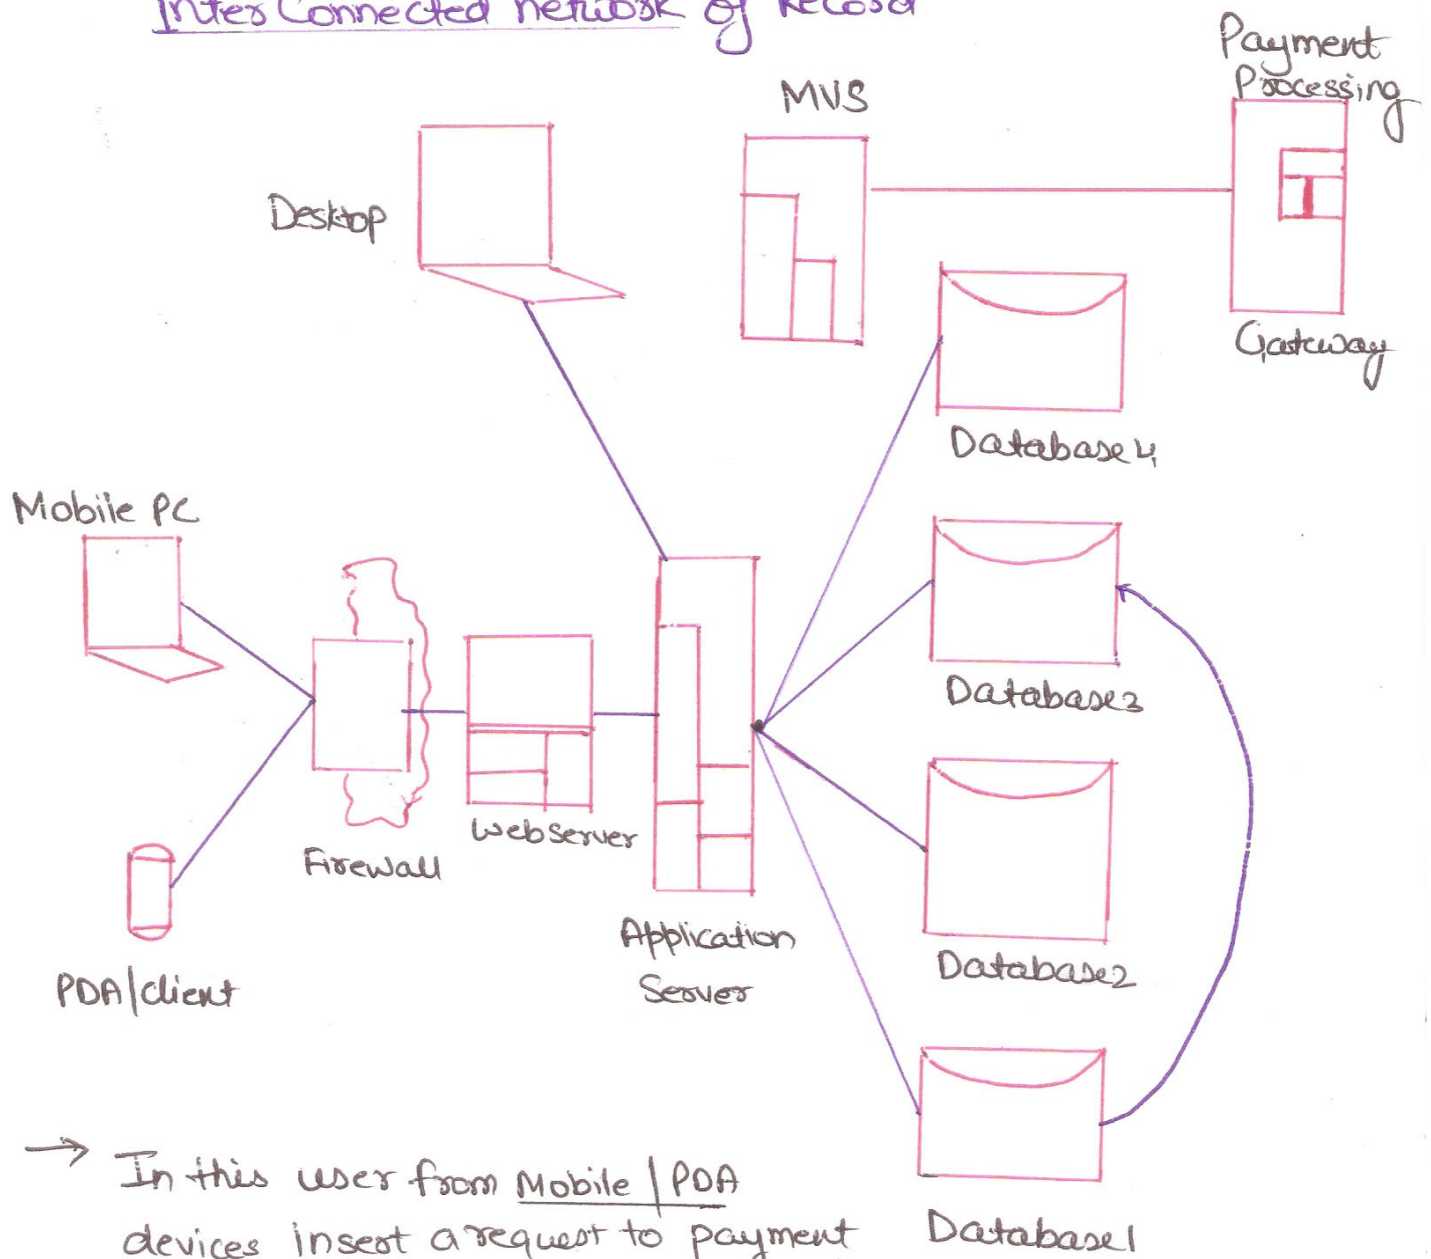 InterConnected network of Record
Payment
Processing
MVS
Desktop
Gateway
Database4
Mobile PC
Database3
Webserver
Firewall
Application
Server
Database2
PDA/client
→ In this user from Mobile/PDA
devices insert a request to payment
Database1